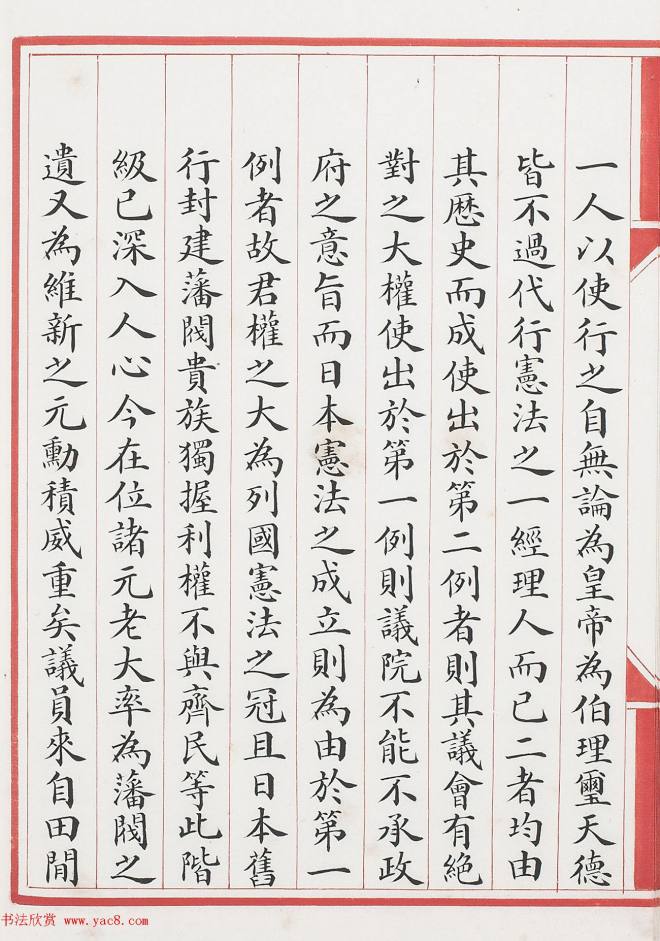 一人以使行之自無論為皇帝為伯理璽天德
皆不過代行憲法之一經理人而已二者均由
其歷史而成使出於第二例者則其議會有絕
對之大權使出於第一例則議院不能不承政
府之意旨而日本憲法之成立則為由於第一
例者故君權之大為列國憲法之冠且日本舊
行封建藩閥貴族獨握利權不與齊民等此階
級已深入人心今在位諸元老大率為藩閥之
遺又為維新之元勳積威重矣議員來自田間
书法欣赏 www.yac8.com